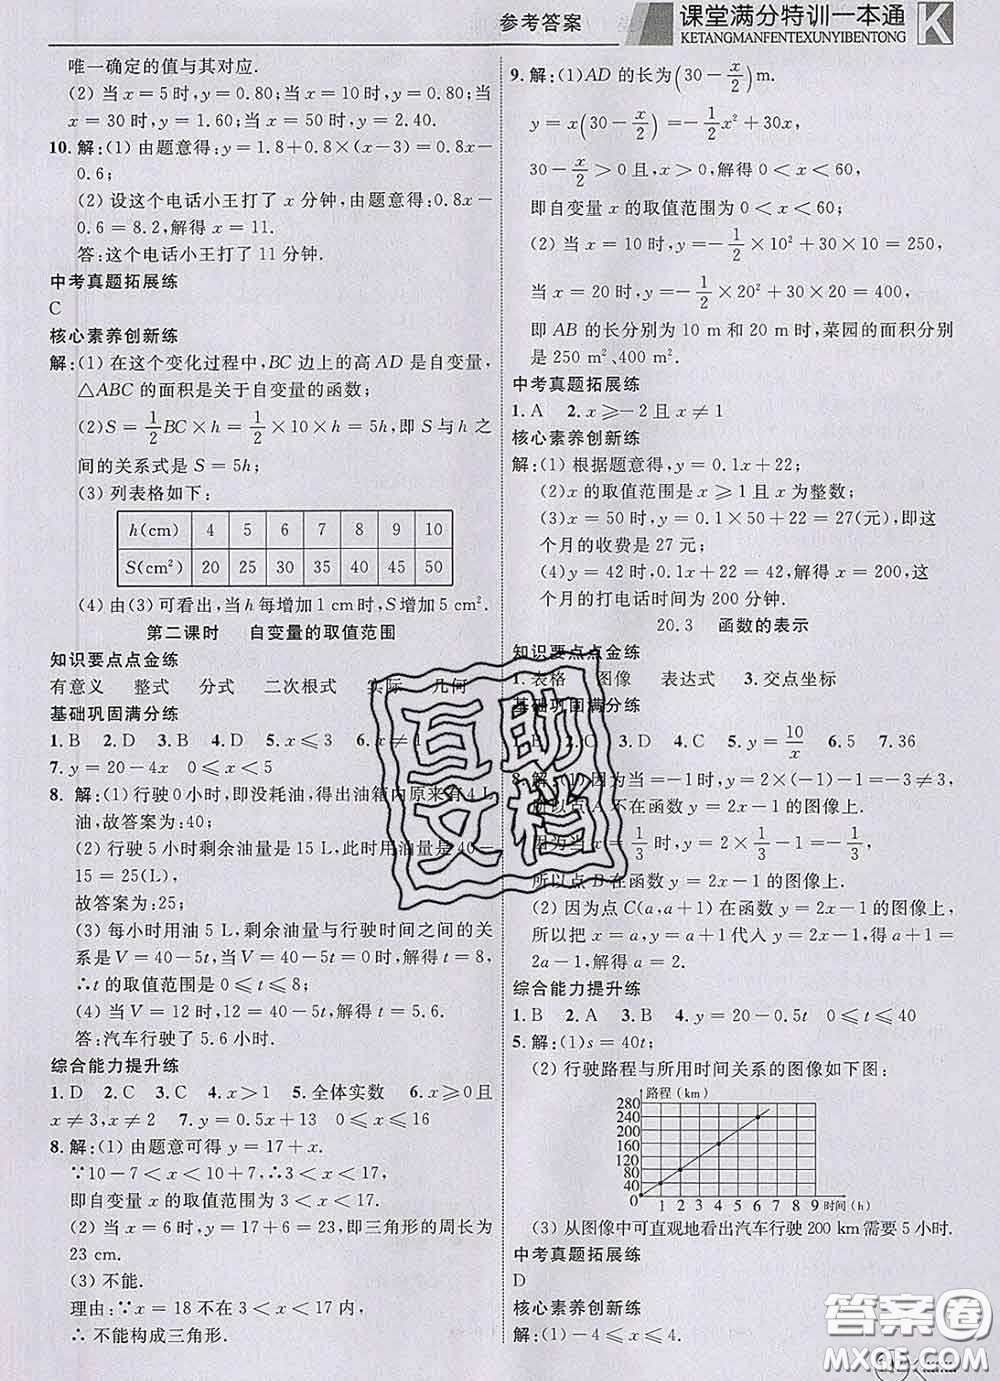 参考答案
课堂满分特训一本通
KETANGMANFENTEXUNYIBENTONG
K
唯一确定的值与其对应.
(2) 当 x=5 时, y=0.80; 当 x=10 时, y=0.80; 当
x=30 时, y=1.60; 当 x=50 时, y=2.40.
10. 解:(1) 由题意得: y=1.8+0.8×(x-3)=0.8x-
0.6;
(2) 设这个电话小王打了 x 分钟, 由题意得: 0.8x-
0.6=8.2, 解得 x=11.
答:这个电话小王打了 11 分钟.
中考真题拓展练
C
核心素养创新练
解:(1) 在这个变化过程中, BC 边上的高 AD 是自变量,
△ABC 的面积是关于自变量的函数;
(2)S=1/2BC×h=1/2×10×h=5h, 即 S 与 h 之
间的关系式是 S=5h;
(3) 列表格如下:
h(cm) 4 5 6 7 8 9 10
S(cm²) 20 25 30 35 40 45 50
(4) 由(3) 可看出, 当 h 每增加1 cm时, S 增加5 cm².
第二课时 自变量的取值范围
知识要点点金练
有意义 整式 分式 二次根式 实际 几何
基础巩固满分练
1. B 2. D 3. B 4. D 5. x≤3 6. x≠1
7. y=20-4x 0≤x<5
8. 解:(1) 行驶 0 小时, 即没耗油, 得出油箱内原来有4 L
油, 故答案为:40;
(2) 行驶 5 小时剩余油量是 15 L, 此时用油量是 40-
15=25(L),
故答案为:25;
(3) 每小时用油 5 L, 剩余油量与行驶时间之间的关
系是 V=40-5t, 当 V=40-5t=0 时, 解得 t=8;
∴t 的取值范围是 0≤t≤8;
(4) 当 V=12 时, 12=40-5t, 解得 t=5.6.
答:汽车行驶了 5.6 小时.
综合能力提升练
1. D 2. C 3. C 4. x>1 5. 全体实数 6. x≥0 且
x≠3, x≠2 7. y=0.5x+13 0≤x≤16
8. 解:(1) 由题意可得 y=17+x.
∵10-7<x<10+7, ∴3<x<17,
即自变量 x 的取值范围为 3<x<17;
(2) 当 x=6 时, y=17+6=23, 即三角形的周长为
23 cm.
(3) 不能.
理由:∵x=18 不在 3<x<17 内,
∴ 不能构成三角形.
9. 解:(1)AD 的长为(30-x/2)m.
y=x(30-x/2)=-1/2x²+30x,
30-x/2>0 且 x>0, 解得 0<x<60,
即自变量 x 的取值范围为 0<x<60;
(2) 当 x=10 时, y=-1/2×10²+30×10=250,
当 x=20 时, y=-1/2×20²+30×20=400,
即 AB 的长分别为 10 m 和 20 m 时, 菜园的面积分别
是 250 m²、400 m².
中考真题拓展练
1. A 2. x≥-2 且 x≠1
核心素养创新练
解:(1) 根据题意得, y=0.1x+22;
(2)x 的取值范围是 x≥1 且 x 为整数;
(3)x=50 时, y=0.1×50+22=27(元), 即这
个月的收费是 27 元;
(4)y=42 时, 0.1x+22=42, 解得 x=200, 这
个月的打电话时间为 200 分钟.
20.3 函数的表示
知识要点点金练
1. 表格 图像 表达式 3. 交点坐标
基础巩固满分练
2. C 3. D 4. C 5. y=10/x 6. 5 7. 36
8. 解:(1) 因为当 x=-1 时, y=2×(-1)-1=-3≠3,
所以点 A 不在函数 y=2x-1 的图像上.
因为当 x=1/3 时, y=2×1/3-1=-1/3,
所以点 B 在函数 y=2x-1 的图像上.
(2) 因为点 C(a,a+1) 在函数 y=2x-1 的图像上,
所以把 x=a, y=a+1 代入 y=2x-1, 得 a+1=
2a-1, 解得 a=2.
综合能力提升练
1. B 2. A 3. B 4. y=20-0.5t 0≤t≤40
5. 解:(1)s=40t;
(2) 行驶路程与所用时间关系的图像如下图:
路程(km)
280
240
200
160
120
80
40
0 1 2 3 4 5 6 7 8 9 时间(h)
(3) 从图像中可直观地看出汽车行驶 200 km 需要 5 小时.
中考真题拓展练
D
核心素养创新练
解:(1)-4≤x≤4.
互助
文档
答案圈
MXQE.COM